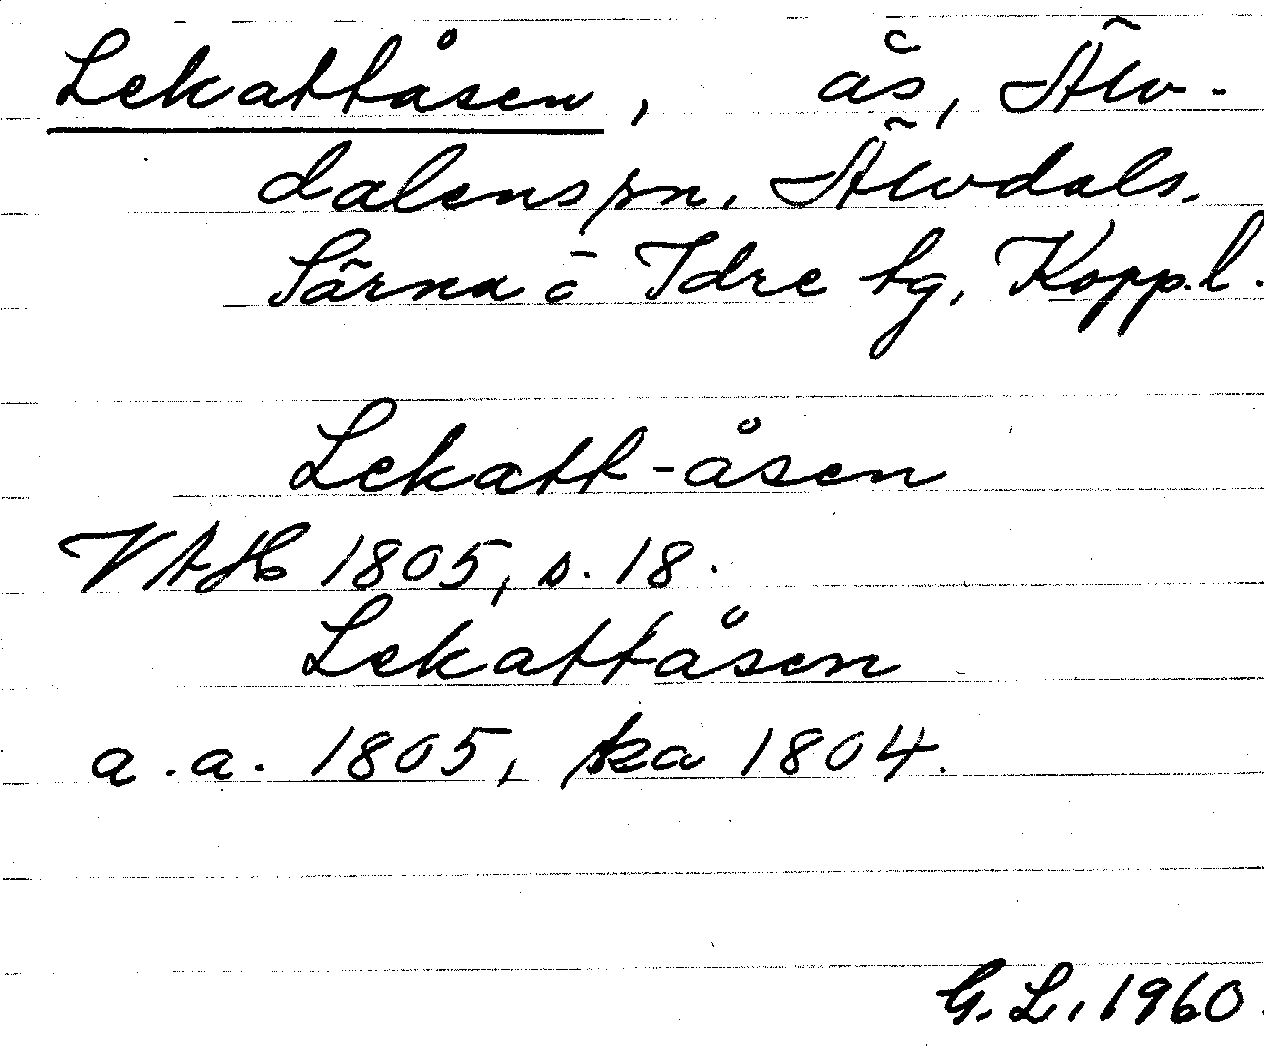 Lekattåsen, ås, Älv-
dalens sn, Älvdals.
Särna o Idre tg, Kopp. l.
Lekatt-åsen
VAH 1805, s. 18.
Lekattåsen
a. a. 1805, ka 1804.
G. L. 1960.